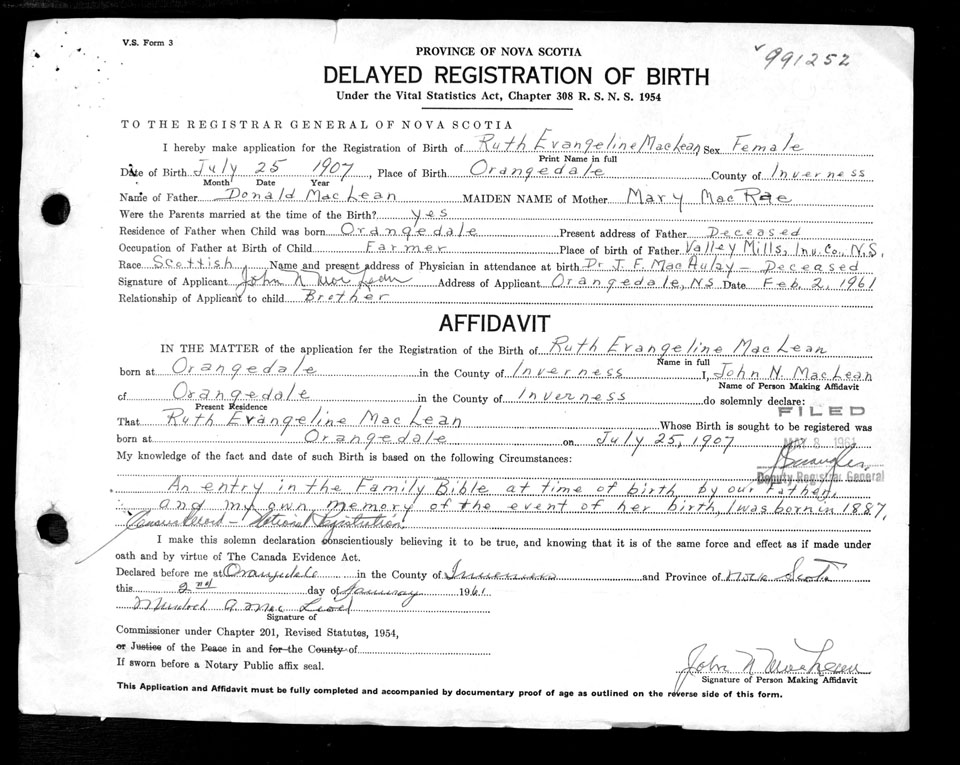 V.S. Form 3
991252
PROVINCE OF NOVA SCOTIA
DELAYED REGISTRATION OF BIRTH
Under the Vital Statistics Act, Chapter 308 R. S. N. S. 1954
TO THE REGISTRAR GENERAL OF NOVA SCOTIA
I hereby make application for the Registration of Birth of Ruth Evangeline MacLean Sex Female
Print Name in full
Date of Birth July 25 1907, Place of Birth Orangedale County of Inverness
Month Date Year
Name of Father Donald MacLean MAIDEN NAME of Mother Mary MacRae
Were the Parents married at the time of the Birth? yes
Residence of Father when Child was born Orangedale Present address of Father Deceased
Occupation of Father at Birth of Child Farmer Place of birth of Father Valley Mills, Inv. Co. N.S.
Race Scottish Name and present address of Physician in attendance at birth Dr J. F. MacAulay - Deceased
Signature of Applicant John N MacLean Address of Applicant Orangedale, N.S Date Feb. 2, 1961
Relationship of Applicant to child Brother
AFFIDAVIT
IN THE MATTER of the application for the Registration of the Birth of Ruth Evangeline MacLean
Name in full
born at Orangedale in the County of Inverness I, John N. MacLean
Name of Person Making Affidavit
of Orangedale in the County of Inverness do solemnly declare:
Present Residence
FILED
That Ruth Evangeline MacLean Whose Birth is sought to be registered was
born at Orangedale on July 25, 1907
MAY 8 1961
My knowledge of the fact and date of such Birth is based on the following Circumstances:
Deputy Registrar General
An entry in the Family Bible at time of birth by our Father,
and my own memory of the event of her birth, I was born in 1887.
Census Record - National Registration
I make this solemn declaration conscientiously believing it to be true, and knowing that it is of the same force and effect as if made under
oath and by virtue of The Canada Evidence Act.
Declared before me at Orangedale in the County of Inverness and Province of Nova Scotia
this 2nd day of January 1961
Murdoch A. MacLeod
Signature of
Commissioner under Chapter 201, Revised Statutes, 1954,
or Justice of the Peace in and for the County of
If sworn before a Notary Public affix seal.
John N MacLean
Signature of Person Making Affidavit
This Application and Affidavit must be fully completed and accompanied by documentary proof of age as outlined on the reverse side of this form.